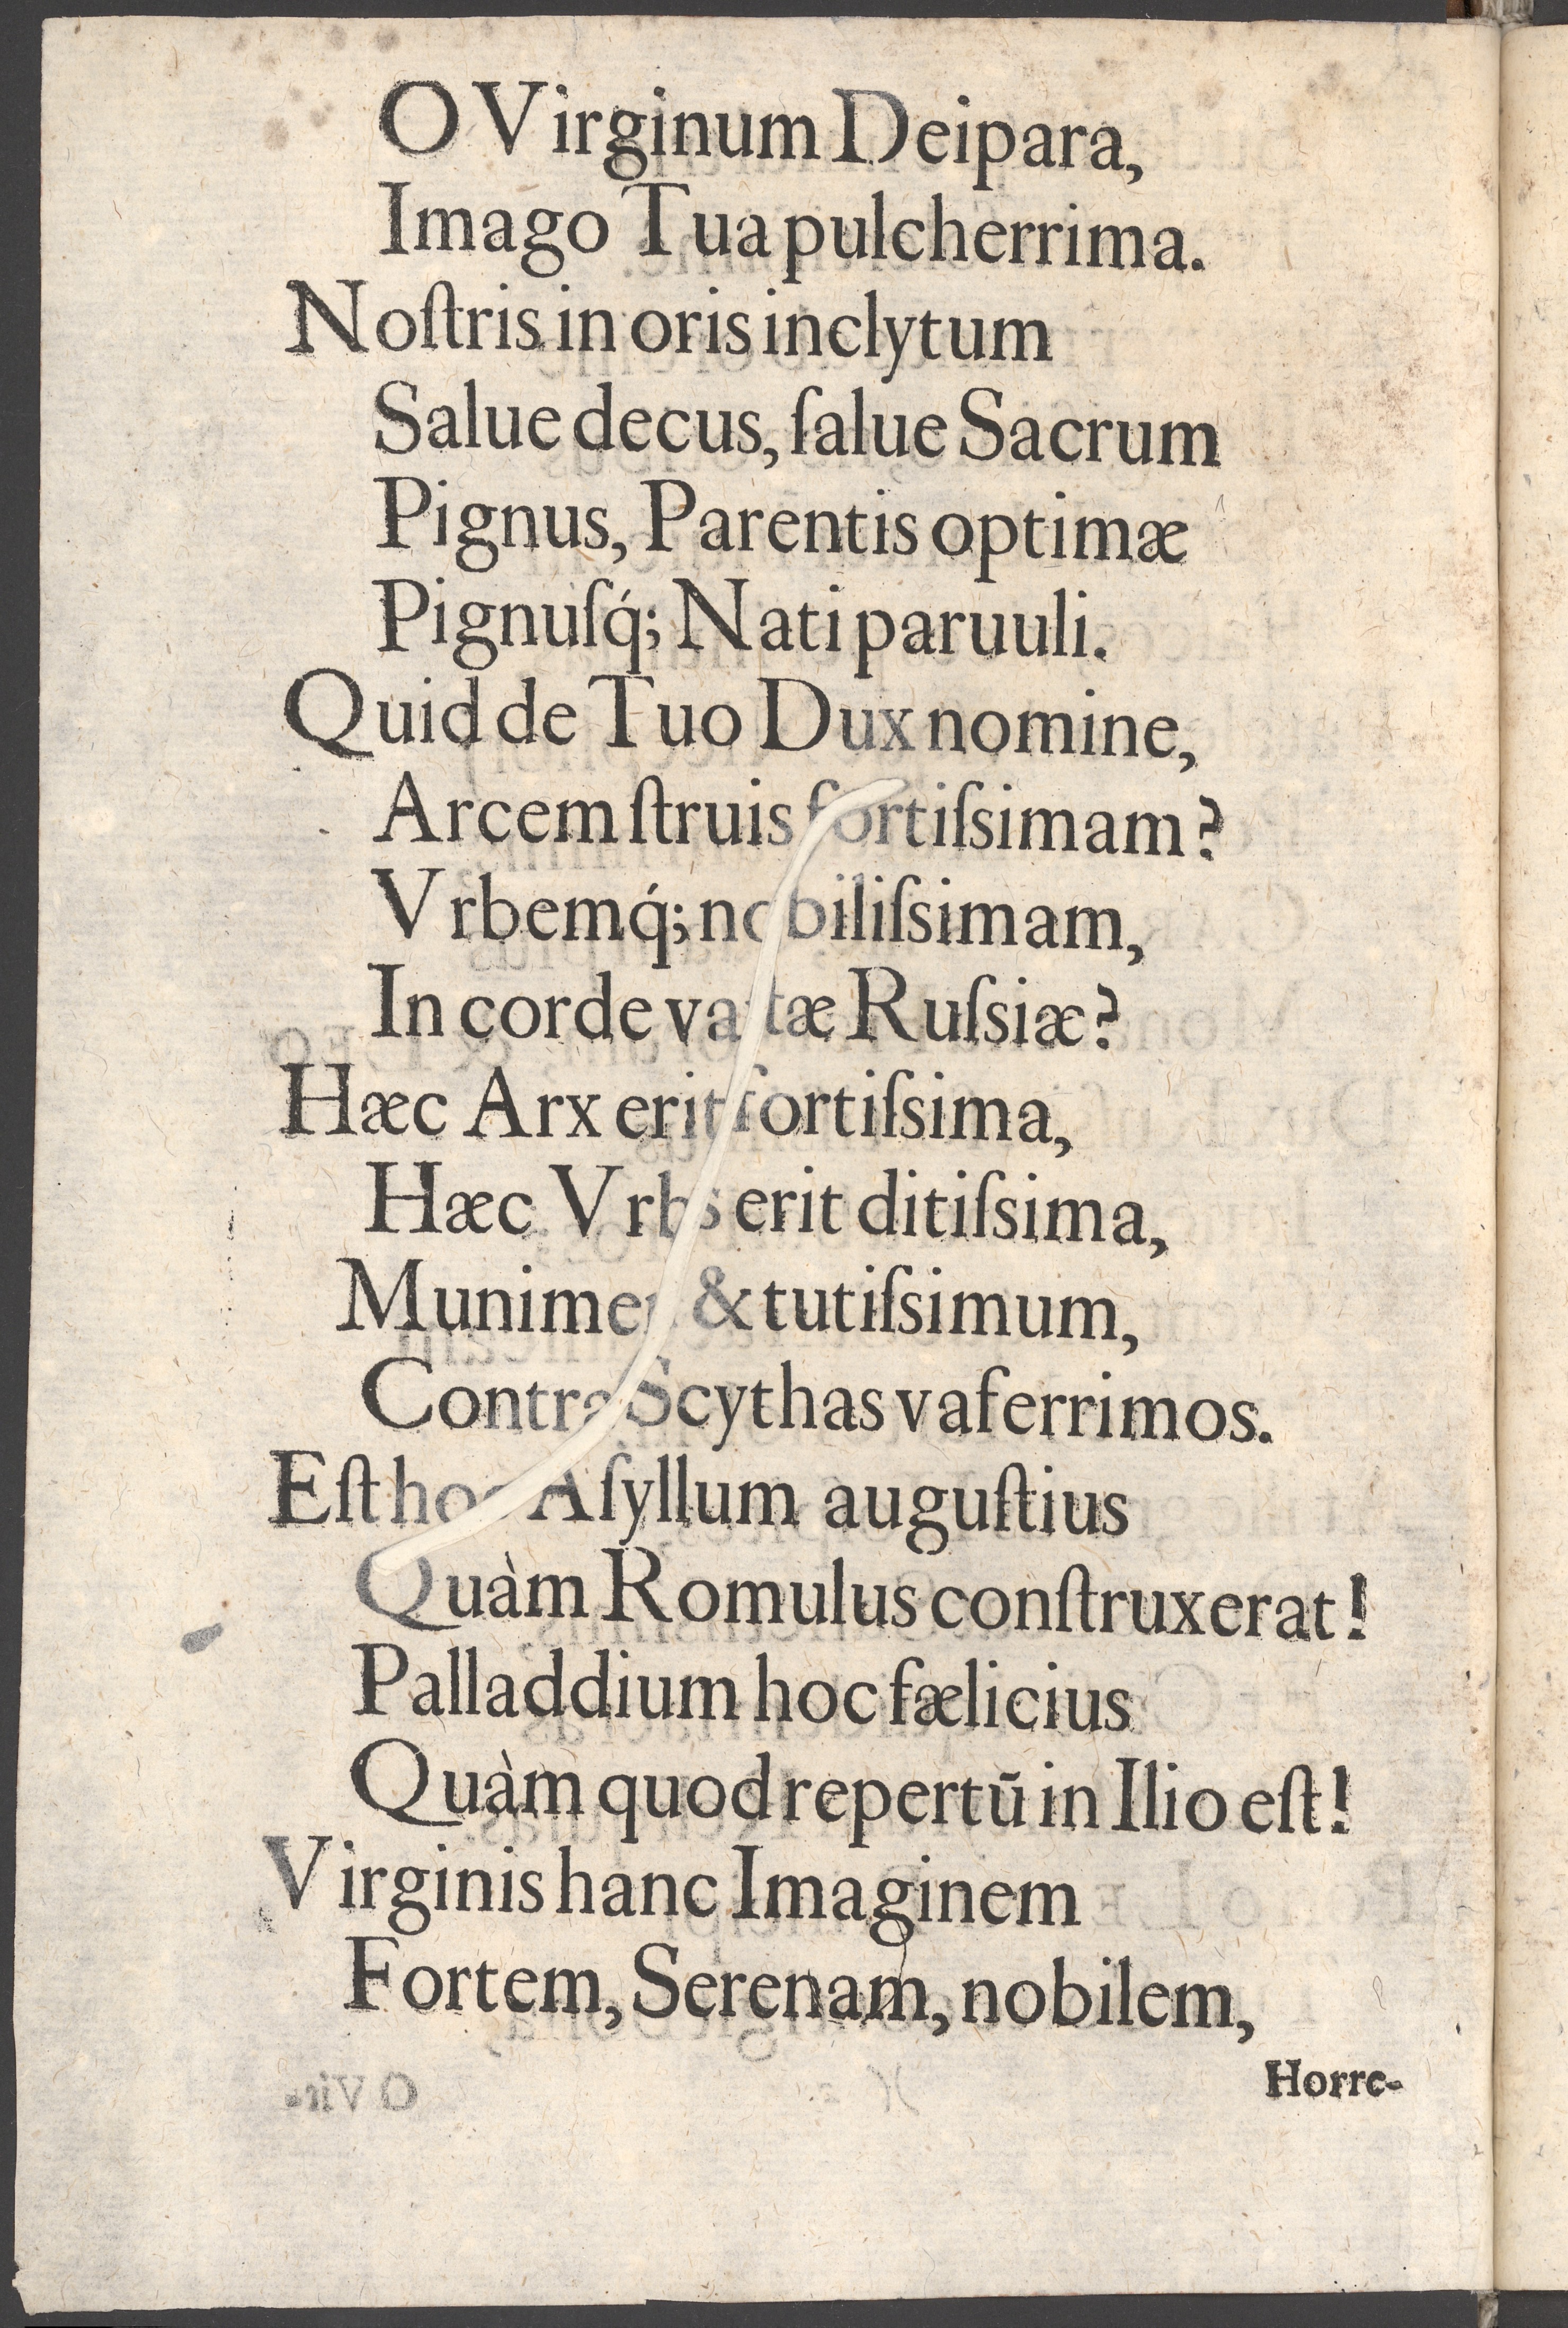 O Virginum Deipara,
Imago Tua pulcherrima.
Noſtris in oris inclytum
Salue decus, ſalue Sacrum
Pignus, Parentis optimæ
Pignuſq́; Nati paruuli.
Quid de Tuo Dux nomine,
Arcem ſtruis fortiſsimam?
Vrbemq́; nobiliſsimam,
In corde vaſtæ Ruſsiæ?
Hæc Arx erit fortiſsima,
Hæc Vrbs erit ditiſsima,
Munimen & tutiſsimum,
Contra Scythas vaferrimos.
Eſt hoc Aſyllum auguſtius
Quàm Romulus conſtruxerat!
Palladdium hoc fælicius
Quàm quod repertū in Ilio eſt!
Virginis hanc Imaginem
Fortem, Serenam, nobilem,
Horre-